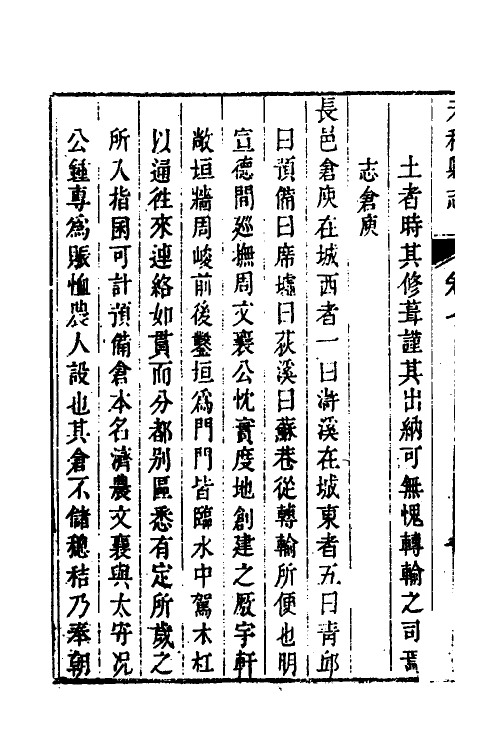 土者時其修葺謹其出納可無愧轉輸之司焉
志倉庾
長邑倉庾在城西者一曰滸溪在城東者五曰青邱
曰預備曰席墟曰荻溪曰蘇巷從轉輸所便也明
宣德間廵撫周文襄公忱實度地創建之厫宇軒
敞垣牆周峻前後鑿垣為門門皆臨水中駕木杠
以通徃來連絡如貫而分都別區悉有定所歲之
所入指囷可計預備倉本名濟農文襄與太守况
公鍾專為賑恤農人設也其倉不儲穂秸乃奉朝